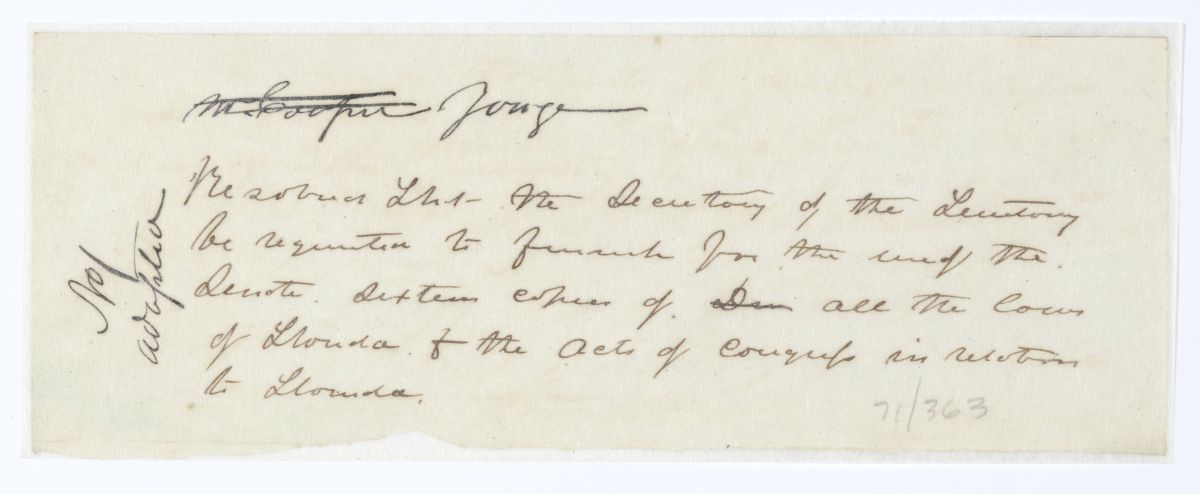 Mr Cooper Yonge
Resolved that the Secretary of the Territory
be requested to furnish for the use of the
Senate. Sixteen copies of. all the Laws
of Florida. & the Acts of Congress in relation
to Florida.
adopted
71/363